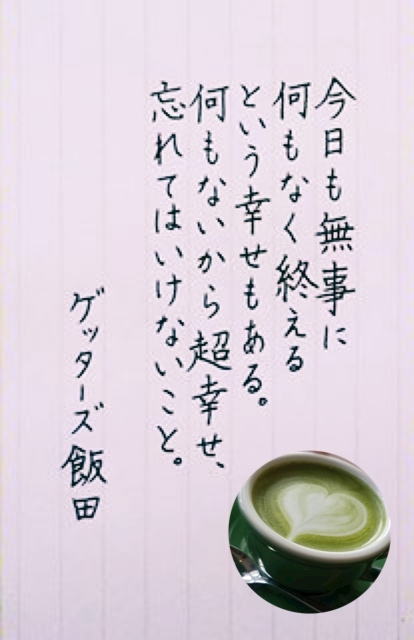 今日も無事に
何もなく終える
という幸せもある。
何もないから超幸せ、
忘れてはいけないこと。
ゲッターズ飯田